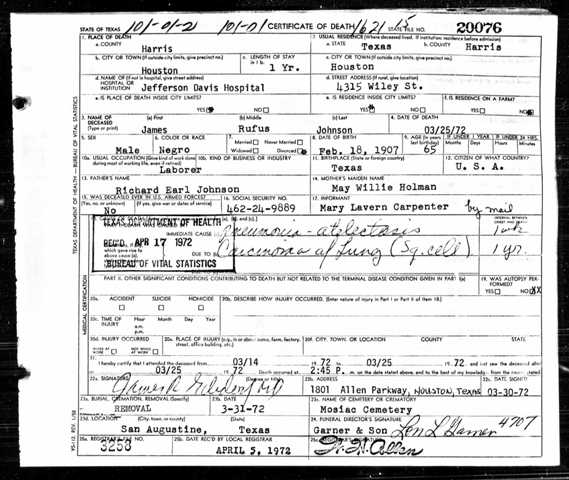 101-01-2 101-01 1621 15
STATE OF TEXAS CERTIFICATE OF DEATH STATE FILE NO. 20076
1. PLACE OF DEATH 2. USUAL RESIDENCE (Where deceased lived. If institution: residence before admission)
a. COUNTY Harris a. STATE Texas b. COUNTY Harris
b. CITY OR TOWN (If outside city limits, give precinct no.) c. LENGTH OF STAY c. CITY OR TOWN (If outside city limits, give precinct no.)
Houston 1 Yr. Houston
d. NAME OF (If not in hospital, give street address) HOSPITAL OR INSTITUTION Jefferson Davis Hospital d. STREET ADDRESS (If rural, give location) 4315 Wiley St.
e. IS PLACE OF DEATH INSIDE CITY LIMITS? e. IS RESIDENCE INSIDE CITY LIMITS? f. IS RESIDENCE ON A FARM?
YES NO YES NO YES NO
3. NAME OF DECEASED (Type or print) (a) First (b) Middle (c) Last 4. DATE OF DEATH
James Rufus Johnson 03/25/72
5. SEX 6. COLOR OR RACE 7. Married Never Married Widowed Divorced 8. DATE OF BIRTH 9. AGE (In years last birthday) IF UNDER 1 YEAR IF UNDER 24 HRS.
Months Days Hours Min.
Male Negro Feb. 18, 1907 65
10a. USUAL OCCUPATION (Give kind of work done during most of working life, even if retired) 10b. KIND OF BUSINESS OR INDUSTRY 11. BIRTHPLACE (State or foreign country) 12. CITIZEN OF WHAT COUNTRY?
Laborer Texas U. S. A.
13. FATHER'S NAME 14. MOTHER'S MAIDEN NAME
Richard Earl Johnson May Willie Holman
15. WAS DECEASED EVER IN U.S. ARMED FORCES? 16. SOCIAL SECURITY NO. 17. INFORMANT
No 462-24-9889 Mary Lavern Carpenter by mail
TEXAS DEPARTMENT OF HEALTH
REC'D APR 17 1972
BUREAU OF VITAL STATISTICS
IMMEDIATE CAUSE Pneumonia - atelectasis 1 wk
DUE TO Carcinoma of Lung (Sq. cell) 1 yr.
INTERVAL BETWEEN
PART II. OTHER SIGNIFICANT CONDITIONS CONTRIBUTING TO DEATH BUT NOT RELATED TO THE TERMINAL DISEASE CONDITION GIVEN IN PART I 19. WAS AUTOPSY PERFORMED?
YES NO XX
20a. ACCIDENT SUICIDE HOMICIDE 20b. DESCRIBE HOW INJURY OCCURRED. (Enter nature of injury in Part I or Part II of Item 18.)
20c. TIME OF INJURY Hour Month Day Year
a.m.
p.m.
20d. INJURY OCCURRED 20e. PLACE OF INJURY (e.g., in or about home, farm, factory, street, office building, etc.) 20f. CITY, TOWN, OR LOCATION COUNTY STATE
WHILE AT WORK NOT WHILE AT WORK
21. I hereby certify that I attended the deceased from 03/14 1972 to 03/25 1972 and last saw the deceased alive
03/25 1972 Death occurred at 2:45 P. m. on the date stated above, and to the best of my knowledge, from the causes stated.
22a. SIGNATURE 22b. ADDRESS 22c. DATE SIGNED
1801 Allen Parkway, HOUSTON, TEXAS 03-30-72
23a. BURIAL, CREMATION, REMOVAL (Specify) 23b. DATE 23c. NAME OF CEMETERY OR CREMATORY
REMOVAL 3-31-72 Mosiac Cemetery
23d. LOCATION (City, town, or county) (State) 24. FUNERAL DIRECTOR'S SIGNATURE
San Augustine, Texas Garner & Son Len L Garner 4707
25a. REGISTRAR'S FILE NO. 25b. DATE REC'D BY LOCAL REGISTRAR 25c. REGISTRAR'S SIGNATURE
3258 APRIL 5, 1972
TEXAS DEPARTMENT OF HEALTH — BUREAU OF VITAL STATISTICS
MEDICAL CERTIFICATION
VS-112 REV. 1/58